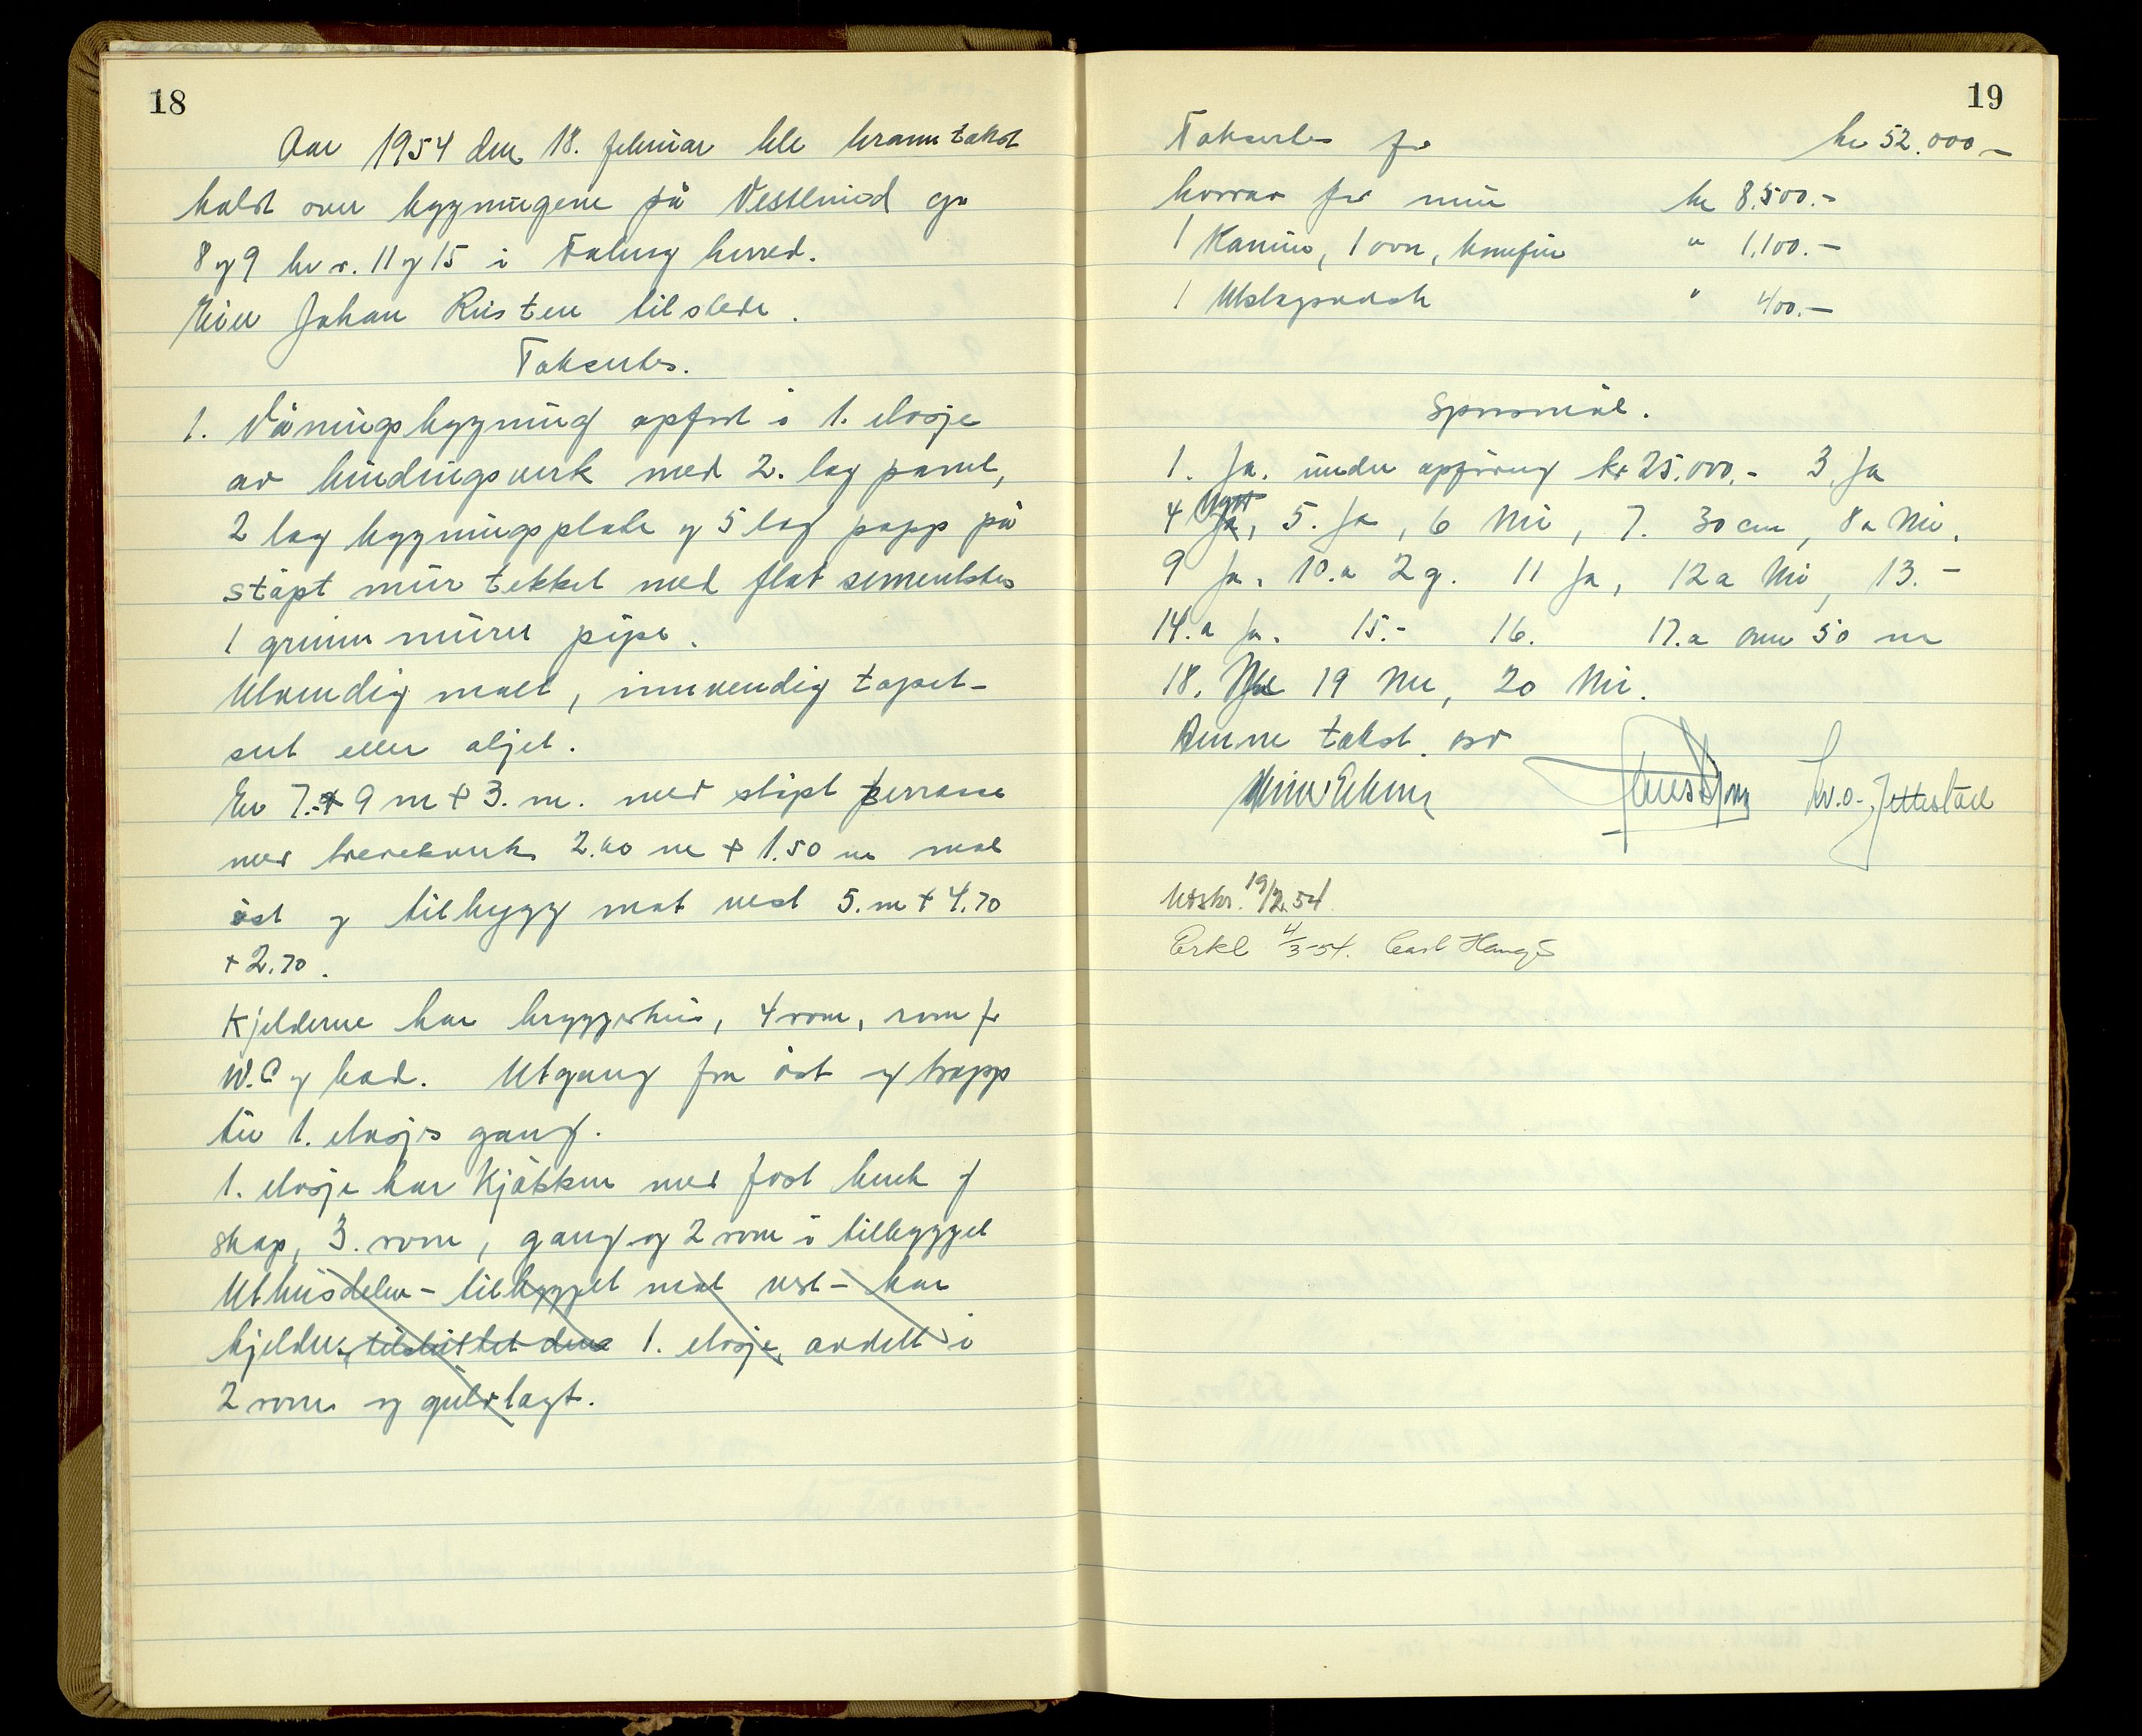 18
Aar 1954 den 18. februar ble branntakst
holdt over bygningene på Vestlund gn
8 og 9 br.nr. 11 og 15 i Faberg herred.
Eier Johan Risten tilstede.
Takseertes.
1. Våningsbygning opført i 1. etasje
av bindingsverk med 2. lag panel,
2 lag bygningsplate og 5 lag papp på
støpt mur tekket med flat sementsten
1 grunn muret pipe.
Utvendig malt, innvendig tapet-
sert eller oljet.
Er 7. + 9 m + 3. m. med støpt terrasse
med trerekkverk 2.40 m + 1.50 m mot
øst og tilbygg mot vest 5. m + 4.70
+ 2.70.
Kjelderne har bryggerhus, 4 rom, rom for
W.C og bad. Utgang fra øst og trapp
til 1. etasjes gang.
1. etasje har kjøkken med fast benk og
skap, 3. rom, gang og 2 rom i tilbygget
Uthusdelen - tilbygget mot vest - har
kjelder, 1. etasje, avdelt i
2 rom og gulvlagt.
19
Takseertes for kr 52.000 -
hvorav for mur kr 8.500.-
1 Kamin, 1 ovn, komfur " 1.100.-
1 Utslagsvask " 400.-
Spørsmål.
1. Ja. under opføring kr 25.000.- 3. Ja
4 Nytt, 5. Ja, 6 Nei, 7. 30 cm, 8a Nei,
9 Ja, 10.a 2 g. 11 Ja, 12a Nei, 13. -
14.a Ja. 15.- 16. 17.a Over 50 m
18. Nei 19 Nei, 20 Nei.
Denne takst osv
Utskr. 19/2.54.
Erkl 4/3-54. Carl Haugs